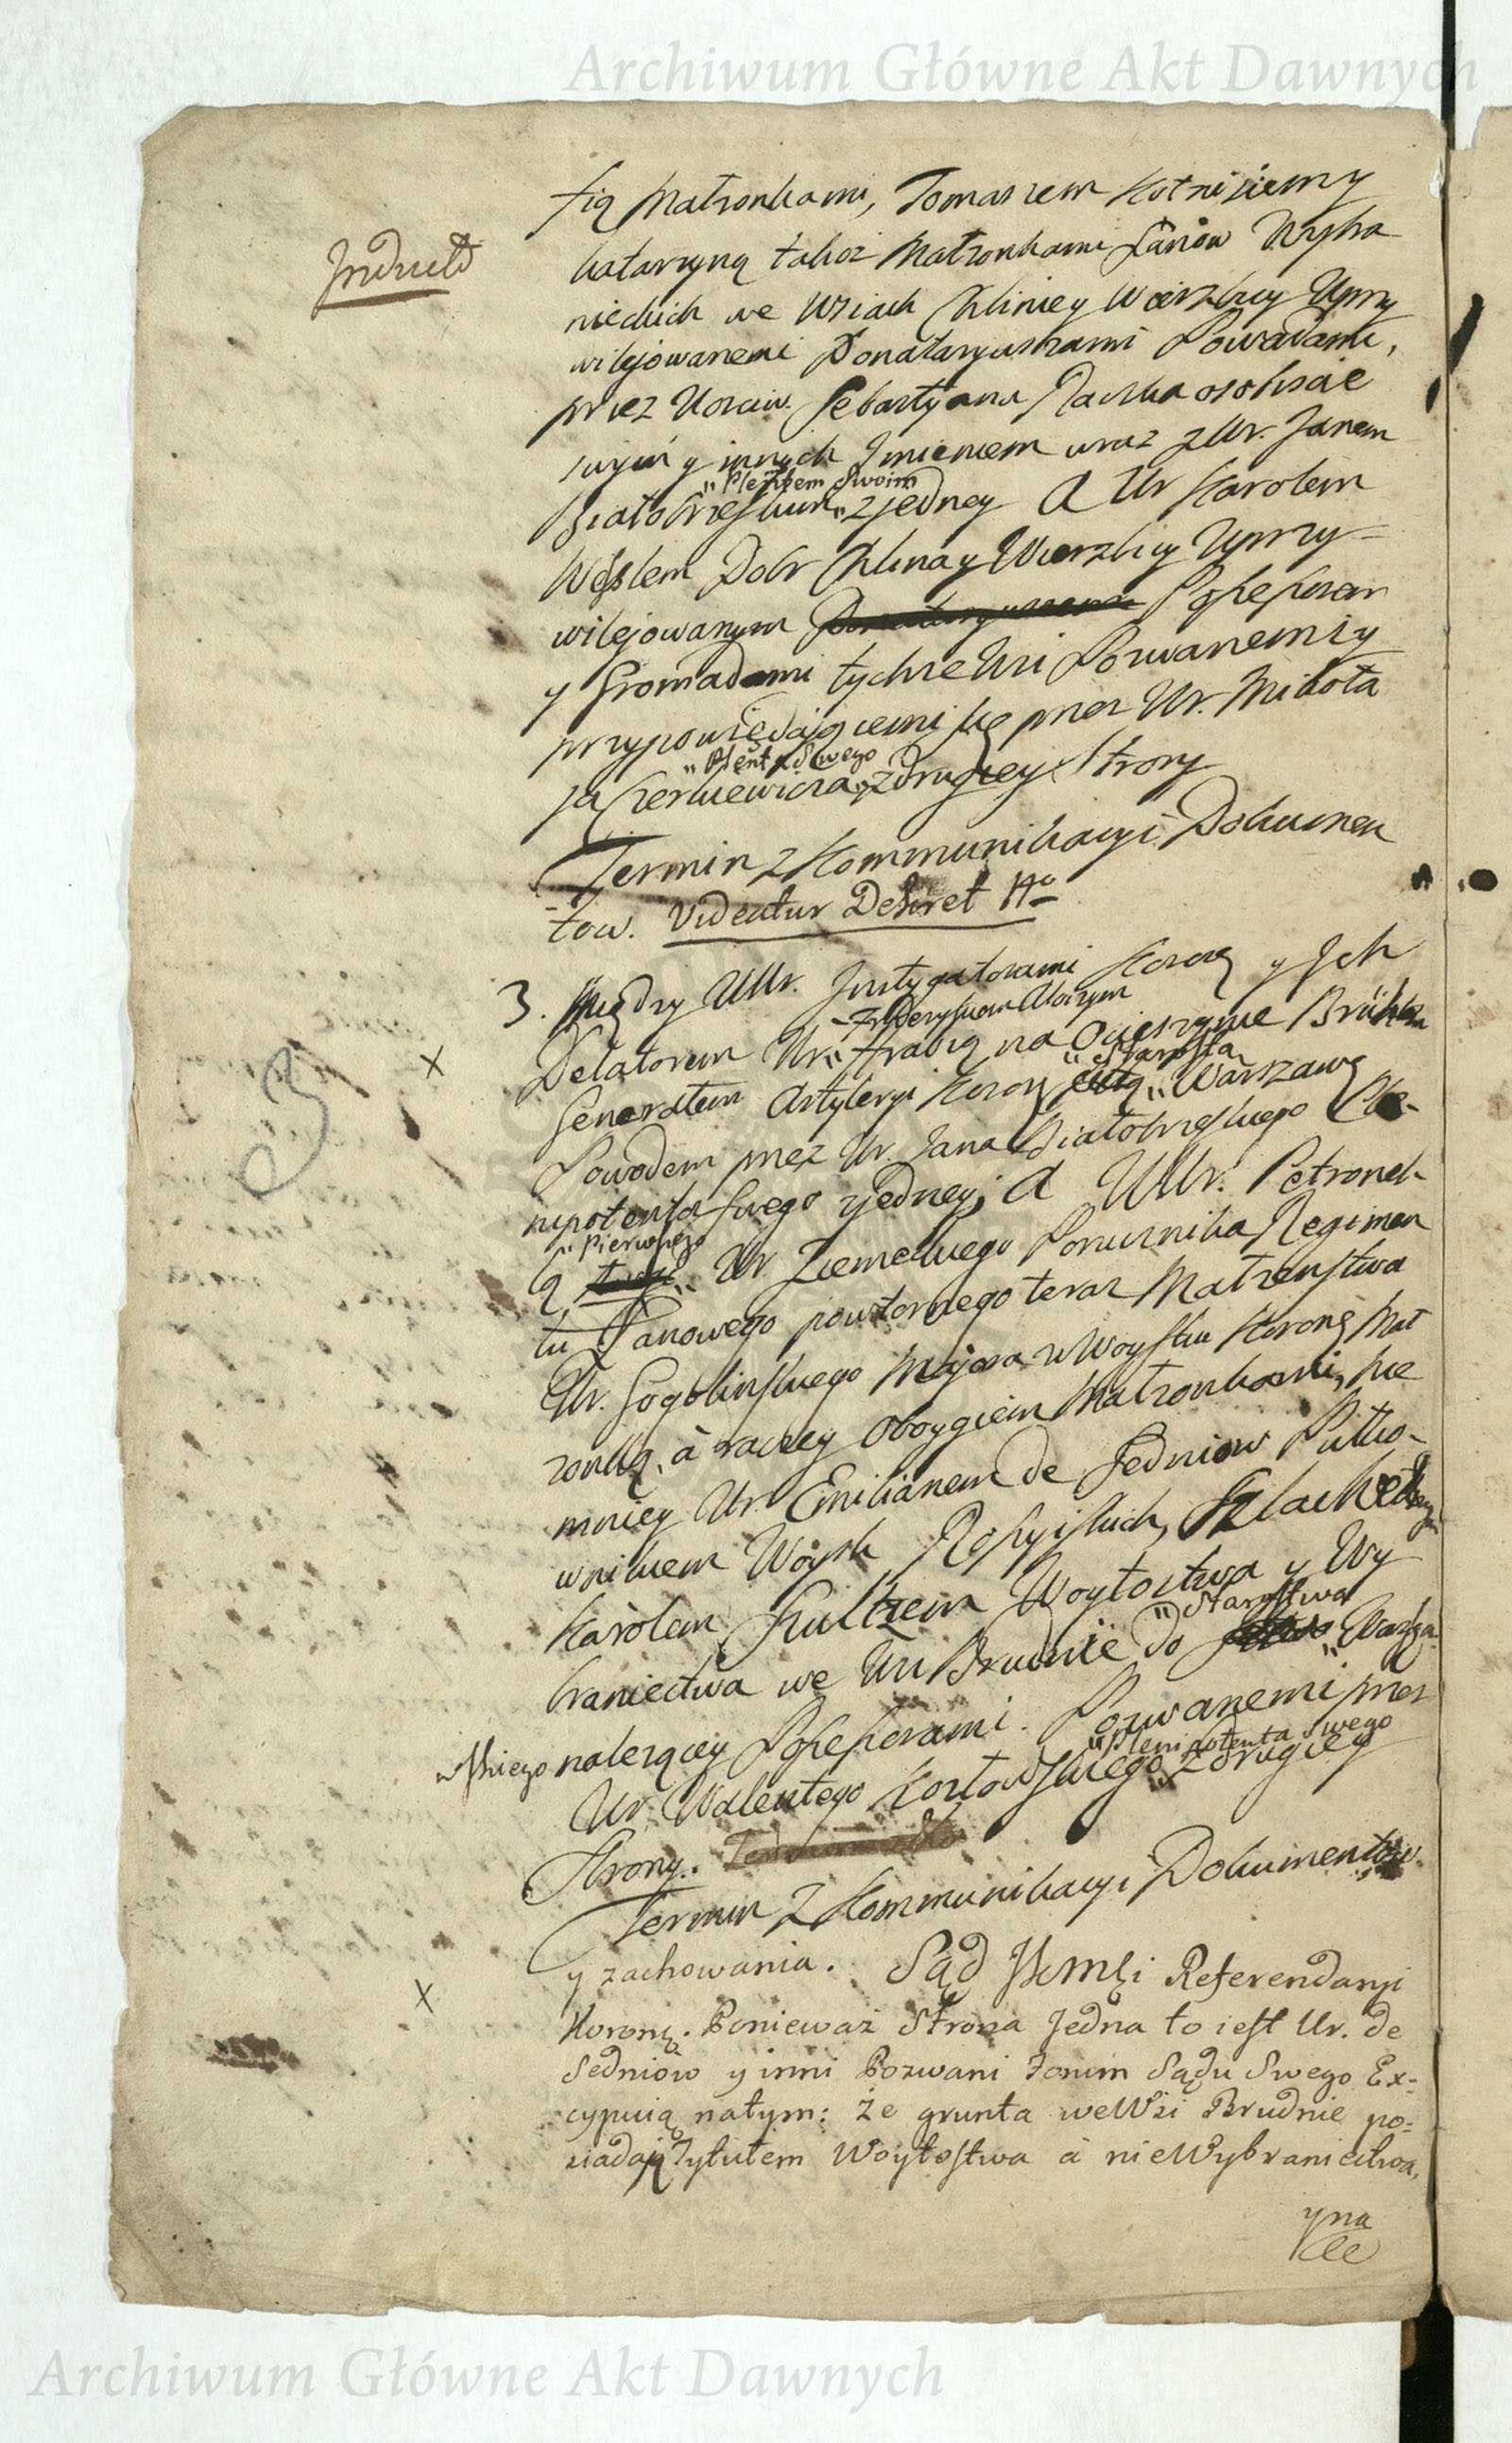 Archiwum Główne Akt Dawnych
Inductũ
tią Małzonkami, Tomaszem
katarzyną takoż Małzonkami Łanow Wybra
nieckich we Wsiach Chliney Wierzbicy Uprzy
wilejowanemi Donataryuszami Powodami,
przez Uczciw. Sebastyana osobiscie
swym y innych Imieniem wraz z Ur. Janem
Białobrzeskim „Plenptem Swoim„ z jedney A Ur Karolem
Wesslem Dobr Chlina y Wierzbicy Uprzy=
wilejowanym Possessorem
y Gromadami tychże Wsi Pozwanemi y
przypowiedaiącemi się przez Ur. Mikoła
ja Czerkiewicza „Plenpta Swego„ z drugiey Strony
Termin z Kommunikacyi Dokumen
tow. Videatur Dekret No
3. Między UUr. Instygatorami Koron y Ich
Delatorem Ur. „Fryderykiem Aloizym„ Hrabią na Ocieszynie Brühlem
Generałem Artyleryi Koron „Starostą„ Warszaws
Powodem przez Ur. Jana Białobrzeskiego Ple-
nipotenta swego z jedney, A UUr. Petronel-
lą „pierwszego„ Ur. Ziemeckiego Porucznika Regimen
tu Łanowego powtornego teraz Małzenstwa
Ur. Gogolinskiego Majora w Woysku Koronę Mał
zonką, à raczey oboygiem Małzonkami, nie
mniey Ur. Emilianem de Sedniow Pułko-
wnikiem Woysk Rossyiskich, Szlachetnym
Karolem Szultzem Woytostwa y Wy
braniectwa we Wsi Brudnie do „Starostwa„ Warsza
wskiego nalezącey Possessorami. Pozwanemi przez
Ur. Walentego Kozłowskiego „Plenipotenta Swego„ z drugiey
Strony.
Termin z Kommunikacyi Dokumentow
y zachowania. Sąd JKMsci Referendaryi
Koronę. Ponieważ Strona Jedna to iest Ur. de
Sedniow y inni Pozwani Forum Sądu Swego Ex=
cypuią natym: że grunta we Wsi Brudnie po=
siadaią Tytułem Woytostwa á nie Wybraniectwa,
y na
Archiwum Główne Akt Dawnych